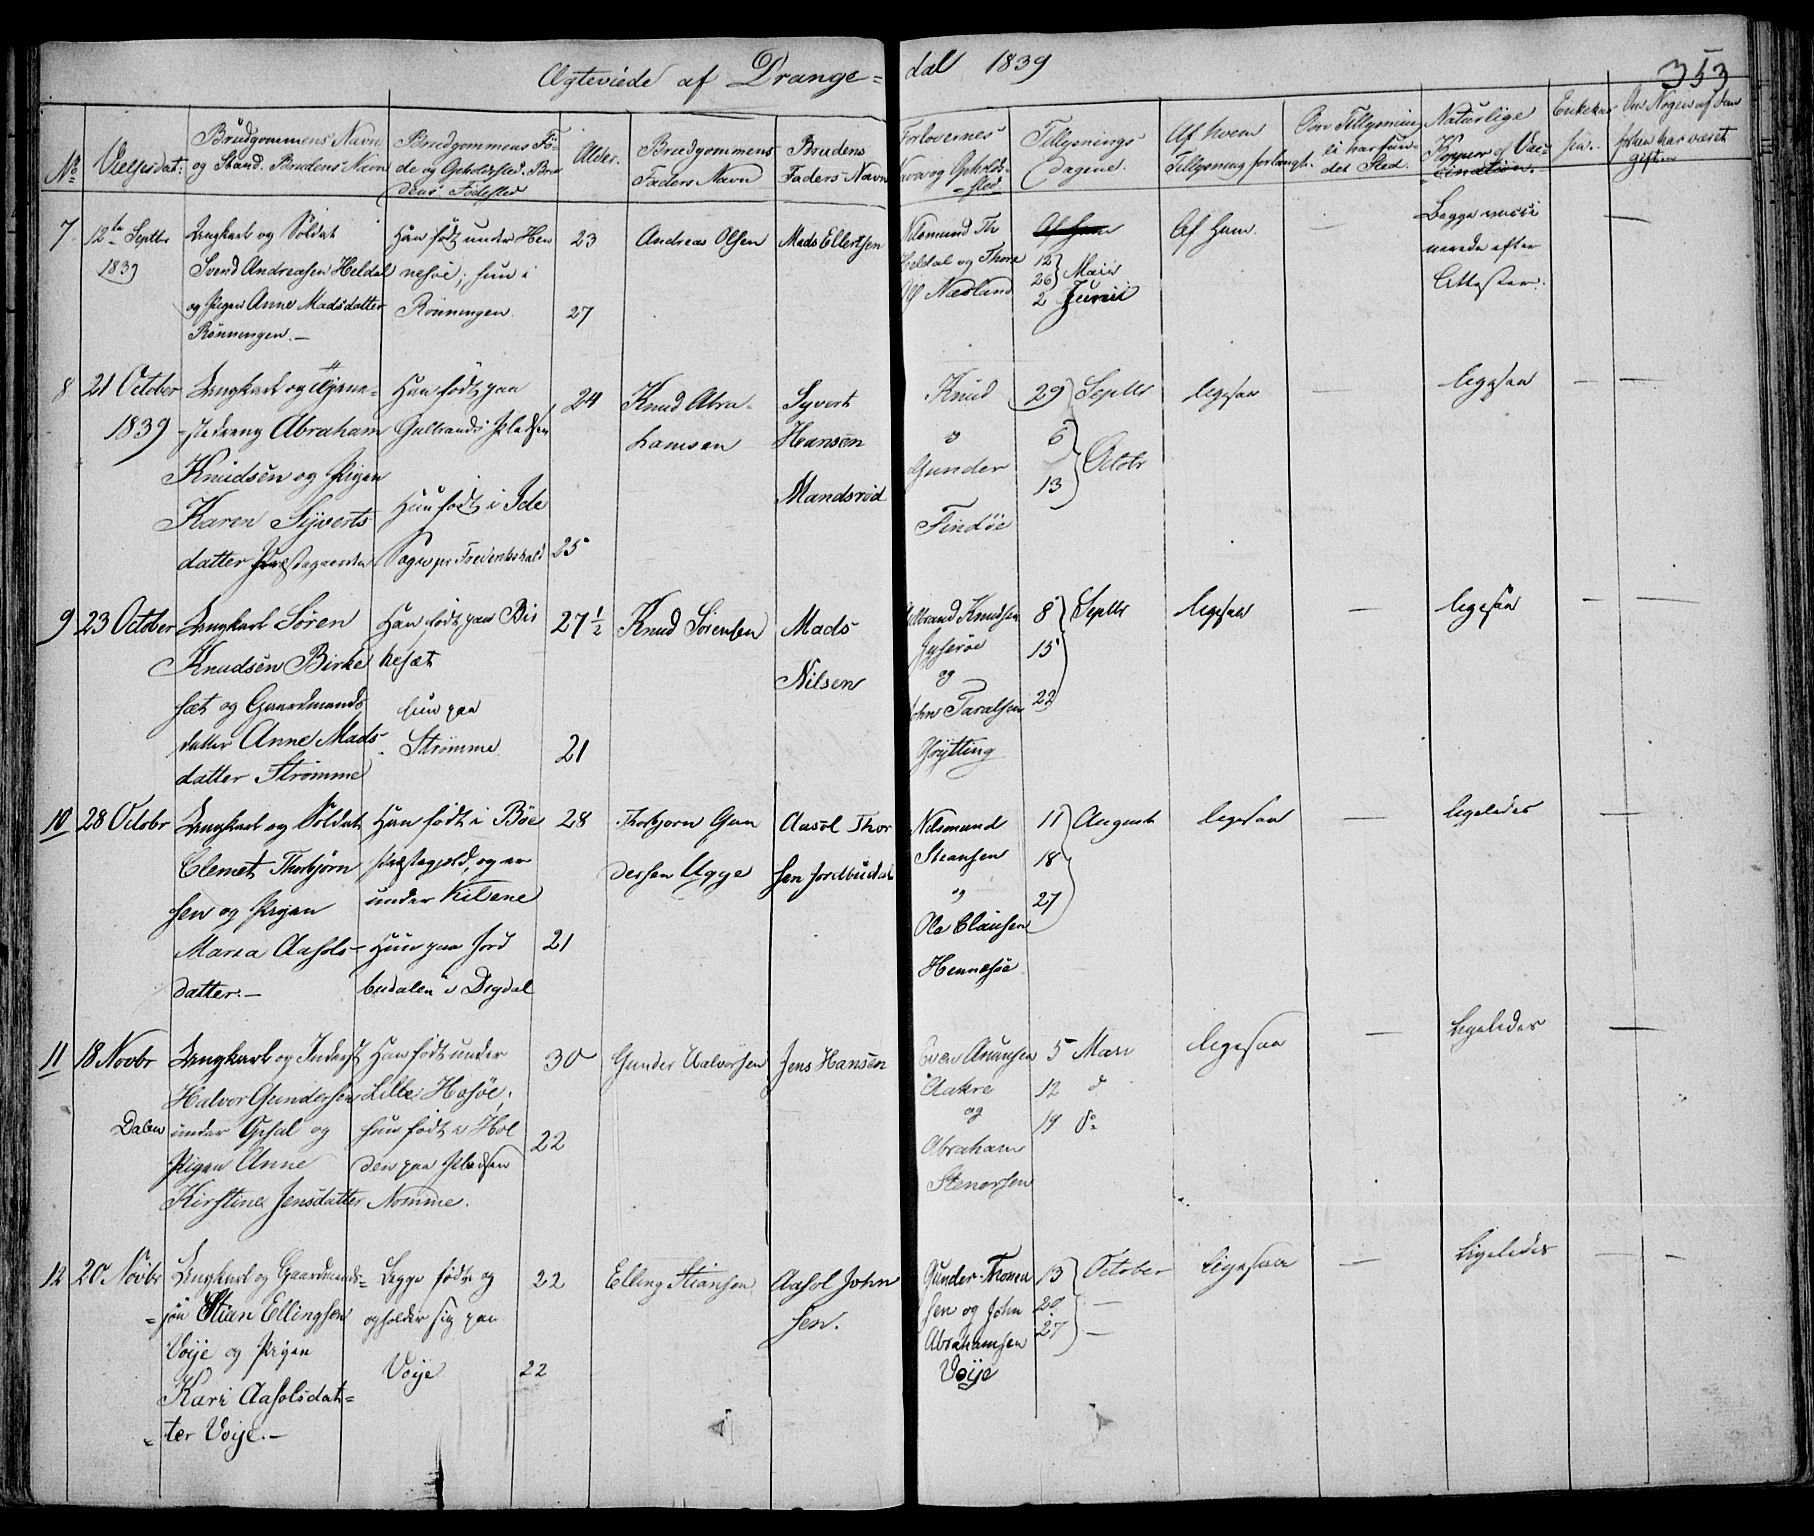 Ægteviede af Drange= dal 1839
353
No
Vielsesdat:
Brudgommens Navn
og Stand. Brudens Navn
Brudgommens Fö-
de og Opholdsted. Bru
dens Fødested
Alder.
Brudgommens
Faders Navn
Brudens
Faders Navn
Forlovernes
Navn og Opholds-
sted
Tillysnings
dagene.
Af hvem
Tillysning forlangt.
Om Tillysning
ei har fun-
det Sted.
Naturlige
Kopper el Vac-
cination.
Om Nogen af dem
før har været
gift
7
12te Septbr
1839
Ungkarl og Soldat
Svend Andreasen Heldal
og Pigen Anne Madsdatter
Rönningen.-
Han født under Hen
nesøe; hun i
Rönningen
23
27
Andreas Olsen
Mads Ellertsen
Heldal og Thore
Næsland
12
26 Maii
2 Junii
Af Ham.
Begge vacci
nerede efter
Attester.
8
21 October
1839
Ungkarl og
Abraham
Knudsen og Pigen
Karen Syverts
datter Præstegaarden
Han født paa
Gulbrands Pladsen
Hun født i Ide
Sogn pr Frederikshald
24
25
Knud Abra-
hamsen
Syvert
Hansen
Mandsrød
Knud
og
Gunder
Findøe
29 Septbr
6
13 Octobr
ligesaa
ligesaa
9
23 October
Ungkarl Sören
Knudsen Birke
sæt og Gaardmands
datter Anne Mads-
datter Strømme
Han født paa Bir
kesæt
hun paa
Strømme
27 1/2
21
Knud Sörensen
Mads
Nilsen
Knudsen
og
John Taralsen
8 Septbr
15
22
ligesaa
ligesaa
10
28 Octobr
Ungkarl og Soldat
Clemet Thorbjörn
sen og Pigen
Maria Aasols-
datter.-
Han født i Böe
Præstegjeld, og er
under Kilene
Hun paa Jord
budalen i Drgdal
28
21
Thorbjorn Gun
dersen Ugge
Aasol Thor
sen Jordbudal
Stiansen
og
Ole Clausen
Hennesøe
11 August
18
27
ligesaa
ligeledes
11
18 Novbr
Ungkarl og Inderst
Halvor Gundersen
Dalen under Opsal og
Pigen Anne
Kirstine Jensdatter
Han født under
Lille Hosøe;
hun født i Hol
den paa Pladsen
Nomme.
30
22
Gunder Halvorsen
Jens Hansen
Even Anunsen
Aakre
og
Abraham
Stenersen
5 Mai
12 do
19 do
ligesaa
ligeledes
12
20 Novbr
Ungkarl og Gaardmands=
=søn Stian Ellingsen
Voije og Pigen
Kari Aasolsdat=
=ter Voije.-
Begge fødte og
opholder sig paa
Voije
22
22
Elling Stiansen
Aasol John
sen.
Gunder Thomas
sen og John
Abrahamsen
Voije
13 October
20 -
27 -
ligesaa
ligeledes